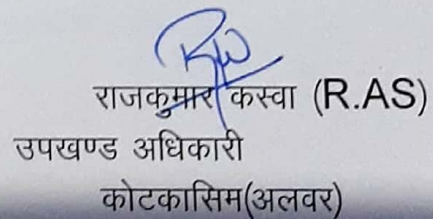 राजकुमार कस्वा (R.AS)
उपखण्ड अधिकारी
कोटकासिम(अलवर)